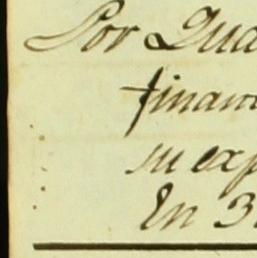 Por Qua
finan
su exp
En 3